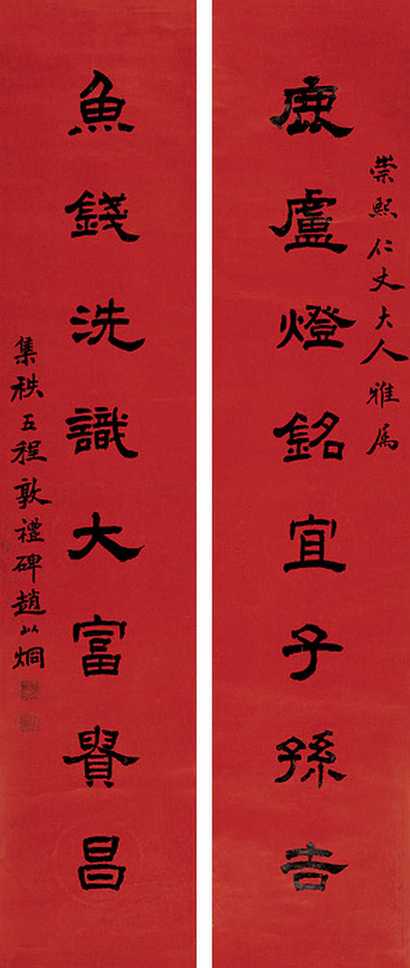 崇熙仁丈大人雅属
鹿盧燈銘宜子孫吉
魚錢洗識大富貴昌
集秩五程敦禮碑趙以炯